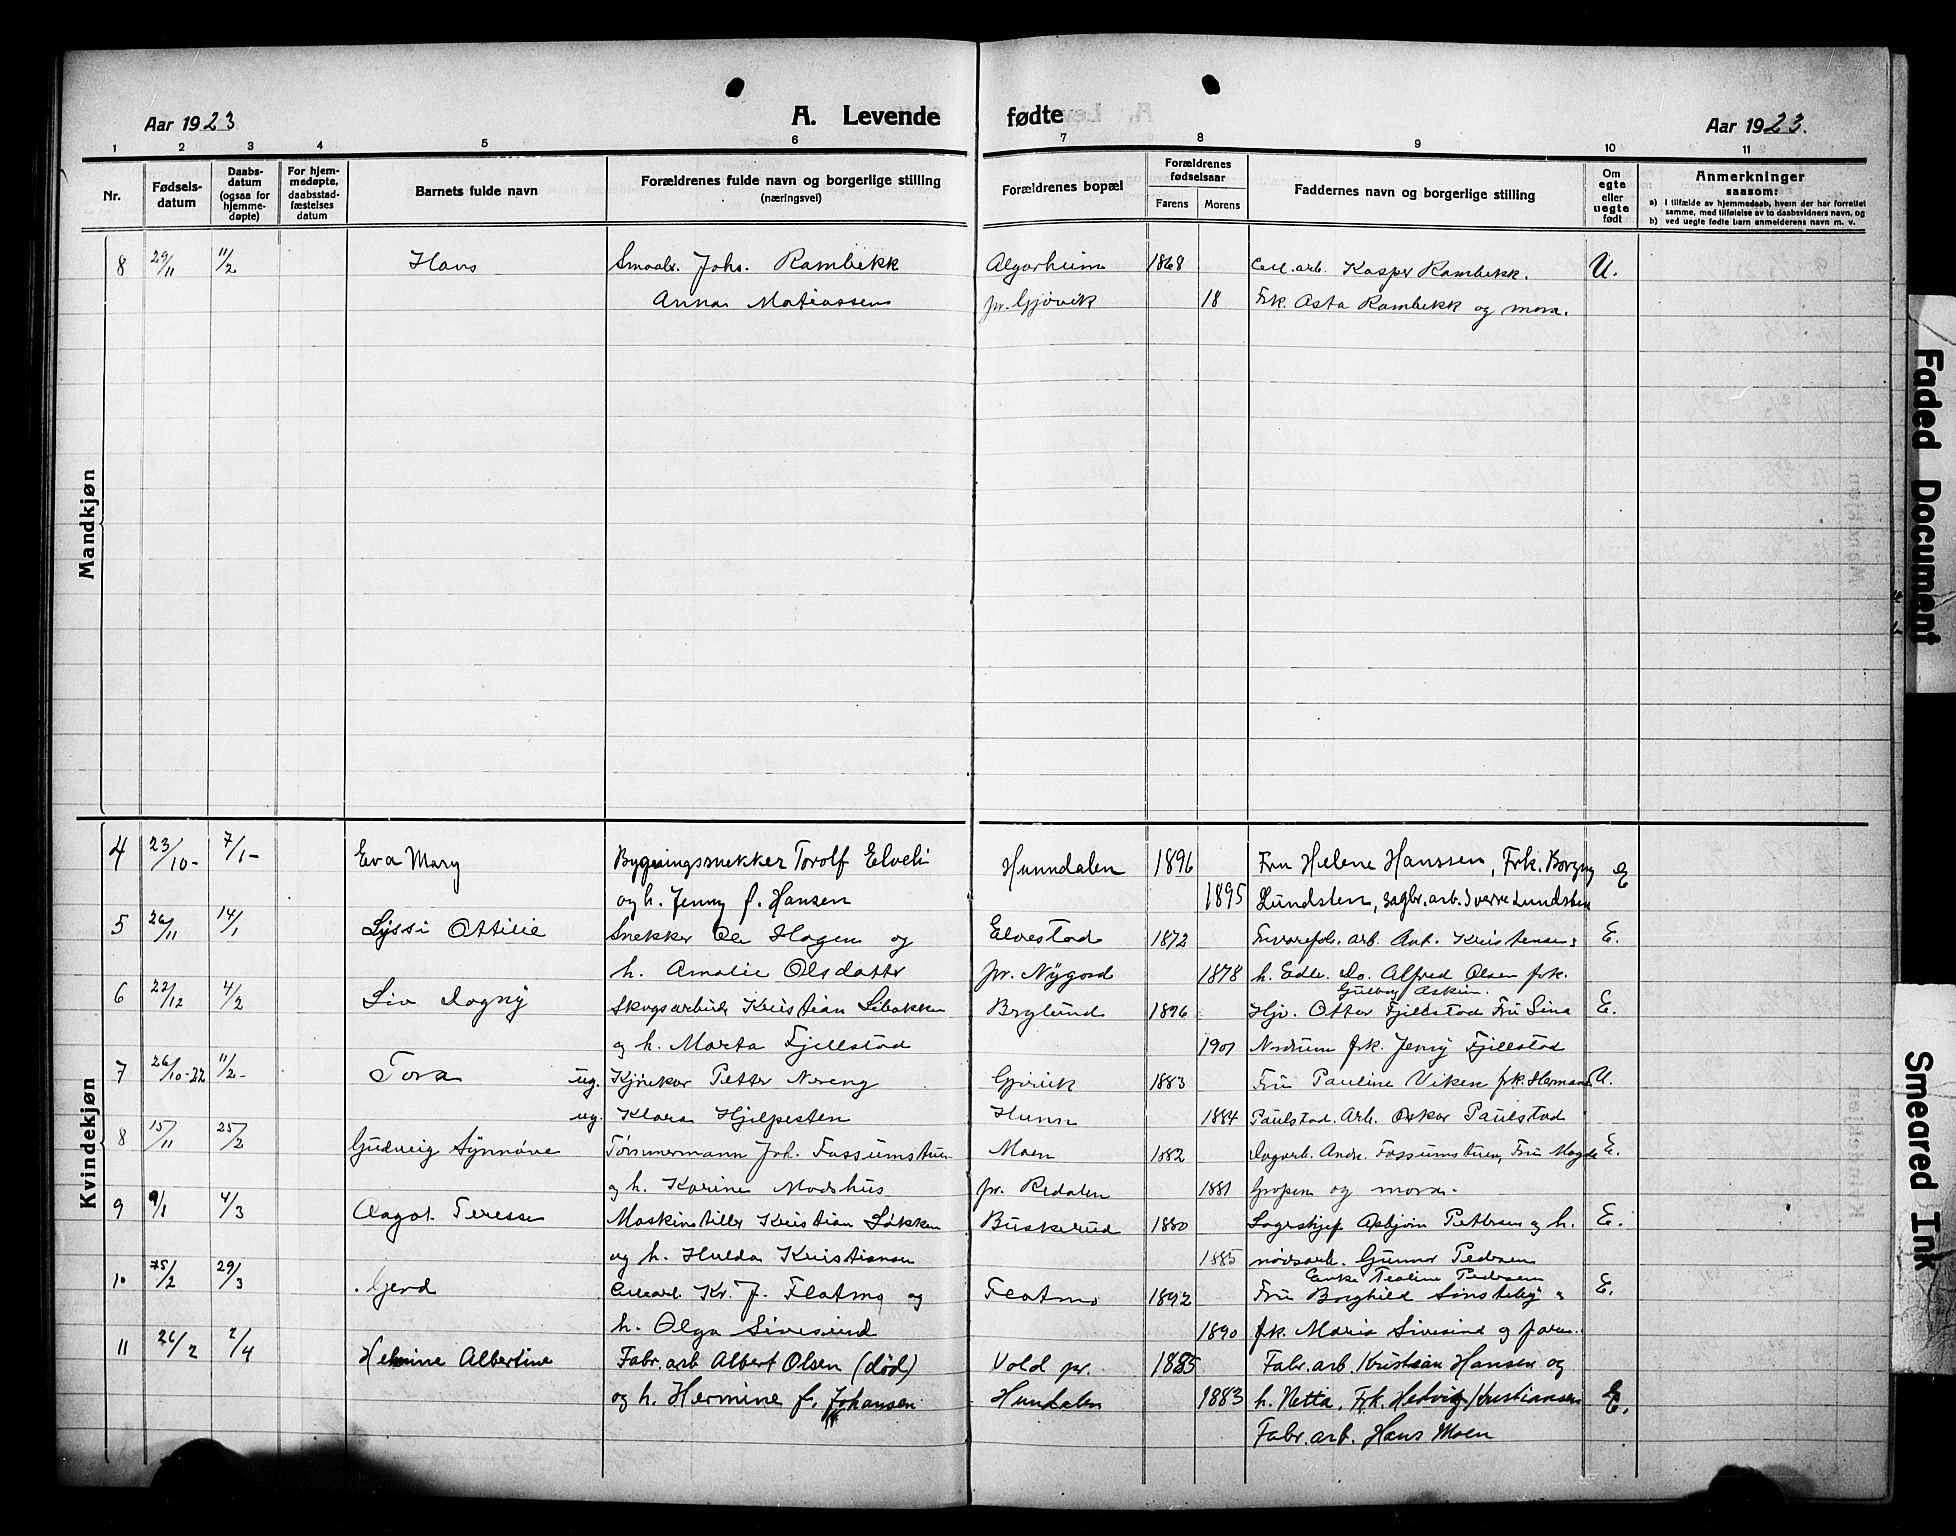 A. Levende fødte
Aar 1923
Aar 1923.
1 2 3 4 5 6 7 8 9 10 11
Nr.
Fødsels-
datum
Daabs-
datum
(ogsaa for
hjemme-
døpte)
For hjem-
medøpte,
daabsstad-
fæstelses
datum
Barnets fulde navn
Forældrenes fulde navn og borgerlige stilling
(næringsvei)
Forældrenes bopæl
Forældrenes
fødselsaar
Farens Morens
Faddernes navn og borgerlige stilling
Om
egte
eller
uegte
født
Anmerkninger
saasom:
a) I tilfælde av hjemmedaab, hvem der har forrettet
samme, med tilføielse av to daabsvidners navn, og
b) ved uegte fødte barn anmelderens navn m. v.
Mandkjøn
8 29/11 11/2 Hans Smaabr. Johs. Rambekk Algarheim 1868 Cell.arb. Kasper Rambekk. U.
Anna Matiassen pr. Gjøvik 18 Frk. Asta Rambekk og mora.
Kvindekjøn
4 23/10- 7/1- Eva Mary Bygningssnekker Torolf Elveli Hunndalen 1896 Fru Helene Hanssen, Frk. Borgny E
og h. Jenny f. Hansen 1895 Lundsten, sagbr.arb. Sverre Lundsten
5 26/11 14/1 Lyssi Ottilie Snekker Ole Hagen og Elvestad 1872 arb. Ant. Kristensen E.
h. Amalie Olsdatter pr. Nygard 1878 h. Edle. Do. Alfred Olsen frk.
Gudbor Askim.
6 22/12 4/2 Liv Dagny Skogsarbeider Kristian Libakken Berglund 1896 Hjv. Otter Fjellstad Fru Lina E.
og h. Marta Fjellstad 1901 Nordrum frk. Jenny Fjellstad
7 26/10-22 11/2- Tora ug. Petter Noreng Gjøvik 1883 Fru Pauline Viken frk. Herman U.
ug. Klara Hjelpesten Hunn 1884 Paulstad. Arb. Oskar Paulstad
8 15/11 25/2 Gudveig Synnøve Tømmermann Joh. Fossumstuen Moen 1882 Dagarb. Andr. Fossumstuen, Fru Magda E.
og h. Karine Madshus pr. Redalen 1881 Gropen og mora.
9 9/1 4/3 Aagot Teresse Maskinstiller Kristian Løkken Buskerud 1880 Lagerskjef Asbjørn Pettersen og h. E.
og h. Hulda Kristiansen 1885 nødsarb. Gunnar Pedersen
Enke Teoline Pedersen
10 25/2 29/3 Gerd Cellearb. Kr. J. Flatmo og Flatmo 1892 Fru Borghild Sinsteby E.
h. Olga Sivesind 1890 frk. Maria Sivesind og faren.
11 26/2 2/4 Helmine Albertine Fabr.arb Albert Olsen (død) Vold pr. 1885 Fabr.arb. Kristian Hansen og
og h. Hermine f. Johansen Hundalen 1883 h. Netta, Frk. Hedvig Kristiansen E.
Fabr.arb. Hans Moen
Faded Document
Smeared Ink